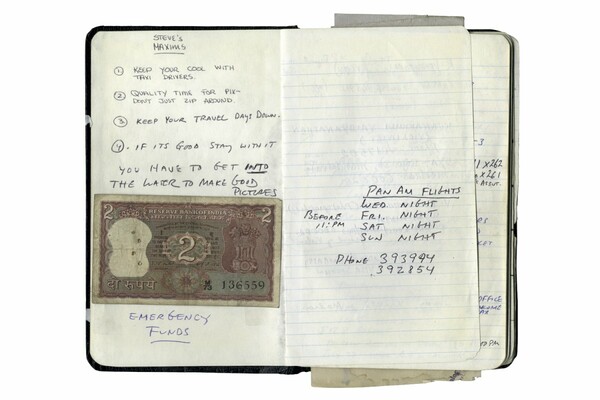 STEVE'S
MAXIMS
① KEEP YOUR COOL WITH
TAXI DRIVERS.
② QUALITY TIME FOR PIX-
DON'T JUST ZIP AROUND.
③ KEEP YOUR TRAVEL DAYS DOWN.
④. IF IT'S GOOD STAY WITH IT
YOU HAVE TO GET INTO
THE WATER TO MAKE GOOD
PICTURES
2 RESERVE BANK OF INDIA 2
2
दो रुपये
136559
EMERGENCY
FUNDS
PAN AM FLIGHTS
WED. NIGHT
BEFORE FRI. NIGHT
11:PM SAT NIGHT
SUN NIGHT
PHONE 393994
392854
X262
X261
OFFICE
PM